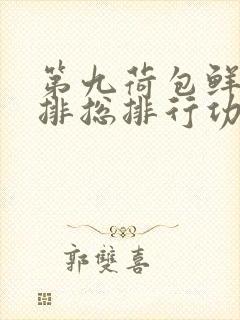 第九荷包鲜
排总排行功
郭雙喜